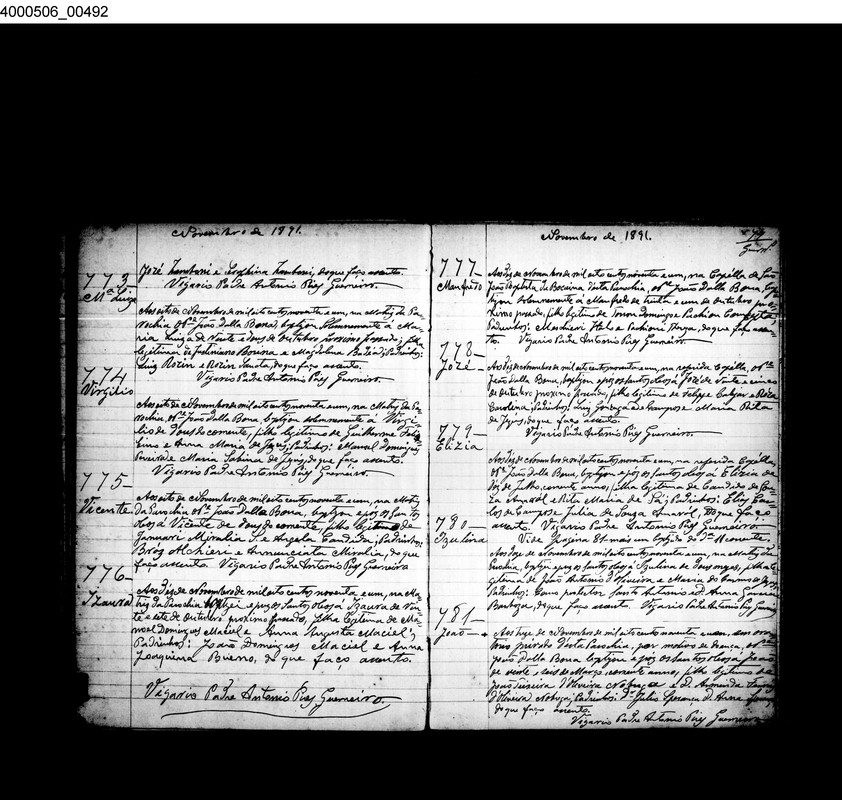 4000506_00492
Novembro de 1891.
José Zamboni e Josephina Zamboni, do que faço assento.
Vigario Padre Antonio Puy Guerreiro.
773_
Ma Luiza
Aos oito de Novembro de mil oito centos noventa e um, na Matriz da Pa-
rochia o Rdo João Dalla Bona, baptizou solemnemente á Ma-
ria Luiza de vinte e dous de Outubro proximo passado; filha
legitima de Rosina e Magdalena Padrinhos:
Luiz Rozin e Rozin do que faço assento.
Vigario Padre Antonio Puy Guerreiro.
774
Virgilio
Aos oito de Novembro de mil oito centos noventa e um, na Matriz da Pa-
rochia, o Rdo João Dalla Bona, baptizou solemnemente á Virgi-
lio de dous do corrente, filho legitimo de Guilherme
e Anna Maria de Jesus; Padrinhos: Manoel Domingues
Pereira e Maria Sabina de Jesus, do que faço assento.
Vigario Padre Antonio Puy Guerreiro.
775_
Vicente
Aos oito de Novembro de mil oito centos noventa e um, na Matriz
da Parochia o Rdo João Dalla Bona, baptizou e poz os Santos
Oleos á Vicente de dous do corrente, filho legitimo de
Januari Miralia e Angela Candida; Padrinhos:
Bróz Alchieri e Annunciata Miralia, do que
faço assento. Vigario Padre Antonio Puy Guerreiro
776_
Izaura
Aos dez de Novembro de mil oito centos noventa e um, na Ma-
triz da Parochia baptizei e puz os Santos Oleos á Izaura de vin-
te e sete de Outubro proximo passado, filha legitima de Ma-
noel Domingues Maciel e Anna Augusta Maciel;
Padrinhos: João Domingues Maciel e Anna
Joaquina Bueno, do que faço assento.
Vigario Padre Antonio Puy Guerreiro.
Novembro de 1891.
79
777_
Manfredo
Aos dez de Novembro de mil oito centos noventa e um, na Capella de São
João Baptista da Bocaina desta Parochia, o Rdo João Dalla Bona, bap-
tizou solemnemente á Manfredo de trinta e um de Outubro pro-
ximo passado, filho legitimo de Domingos e
Padrinhos: Italo e do que faço assen-
to. Vigario Padre Antonio Puy Guerreiro.
778_
José
Aos dez de Novembro de mil oito centos noventa e um, na referida Capella, o Rdo
João Dalla Bona, baptizou e poz os Santos Oleos á José de vinte e cinco
de Outubro proximo passado, filho legitimo de Felipe e
Carolina; Padrinhos: Luiz Gonzaga de Campos e Maria Rita
de Jesus, do que faço assento.
Vigario Padre Antonio Puy Guerreiro.
779_
Elizia
Aos dez de Novembro de mil oito centos noventa e um, na referida Capella,
o Rdo João Dalla Bona, baptizou e poz os Santos Oleos á Elizia de
dez de Julho, corrente anno, filha legitima de Candido de Sou-
za Amaral e Rita Maria de Padrinhos: Car-
los de Campos e Julia de Souza Amaral, do que faço
assento. Vigario Padre Antonio Puy Guerreiro.
Vide Pagina 81 mais um baptizado de
780_
Izulina
Aos doze de Novembro de mil oito centos noventa e um, na Matriz da
Parochia, baptizei e puz os Santos Oleos á Izulina de dous mezes, filha le-
gitima de João Antonio d'Oliveira e Maria do Carmo de Jesus;
Padrinhos: Como protetor Santo Antonio e D. Anna
Barboza, do que faço assento. Vigario Padre Antonio Puy Guerreiro
781_
João_
Aos treze de Novembro de mil oito centos noventa e um, em ora-
torio privado desta Parochia, por motivo de doença, o Rdo
João Dalla Bona baptizou e poz os Santos Oleos á João
de vinte e seis de Março, corrente anno, filho legitimo de
João Teixeira d'Oliveira e D. Arminda
d'Oliveira Padrinhos: Dr. Julio e D. Anna
do que faço assento.
Vigario Padre Antonio Puy Guerreiro